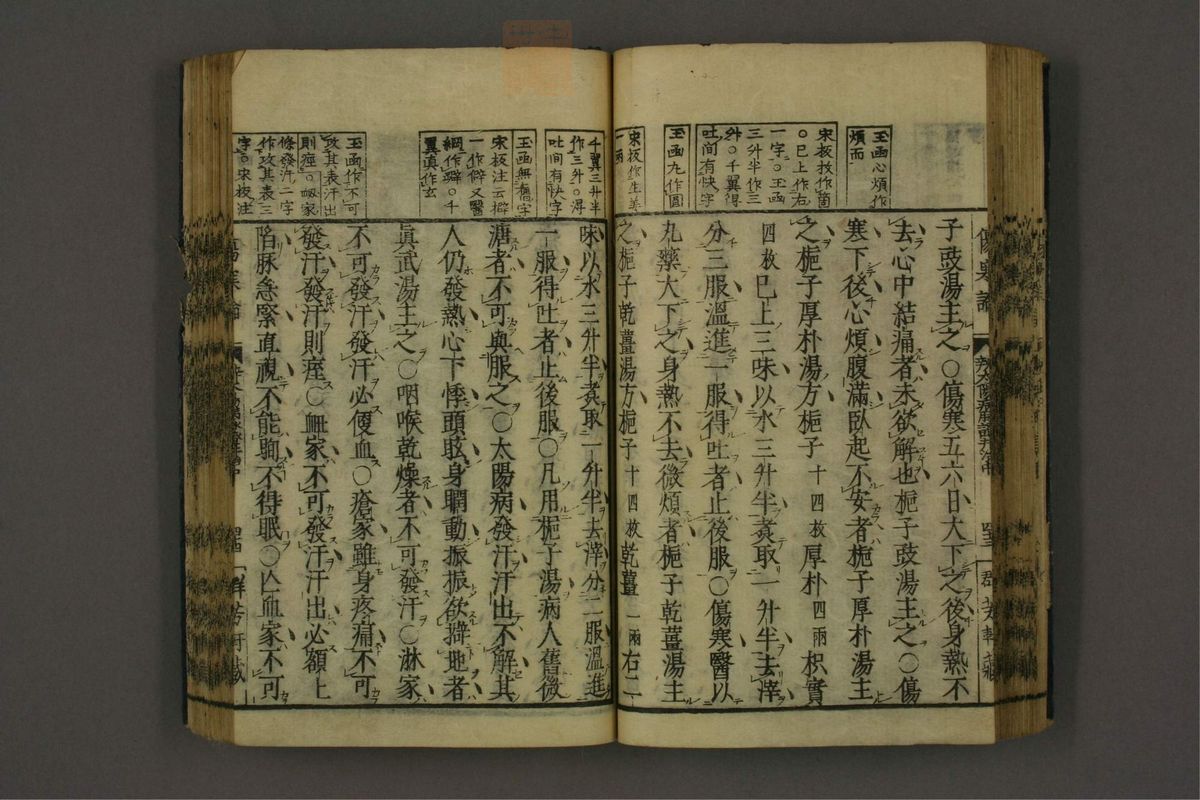 玉函心煩作
煩而
宋板炙作
〇已上作右
一字〇玉函
三升半作三
升〇千翼得
吐間有快字
玉函九作圓
宋板作生姜
一兩
子豉湯主之〇傷寒五六日大下之後身熱不
去心中結痛者未欲解也梔子豉湯主之〇傷
寒下後心煩腹滿臥起不安者梔子厚朴湯主
之梔子厚朴湯方梔子十四枚厚朴四兩枳實
四枚已上三味以水三升半煑取一升半去滓
分二服溫進一服得吐者止後服〇傷寒醫以
丸藥大下之身熱不去微煩者梔子乾薑湯主
之梔子乾薑湯方梔子十四枚乾薑一兩右二
千翼三升半
作三升〇得
吐間有快字
玉函無舊字
宋板注云擗
一作僻又醫
綱作擗〇千
翼眞作玄
玉函作不可
攻其表汗出
則痙〇衂家
條發汗二字
作攻其表三
字〇宋板注
味以水三升半煑取一升半去滓分二服溫進
一服得吐者止後服〇凡用梔子湯病人舊微
溏者不可與服之〇太陽病發汗汗出不解其
人仍發熱心下悸頭眩身瞤動振振欲擗地者
眞武湯主之〇咽喉乾燥者不可發汗〇淋家
不可發汗發汗必便血〇瘡家雖身疼痛不可
發汗發汗則痙〇衂家不可發汗汗出必額上
陷脉急緊直視不能眴不得眠〇亡血家不可